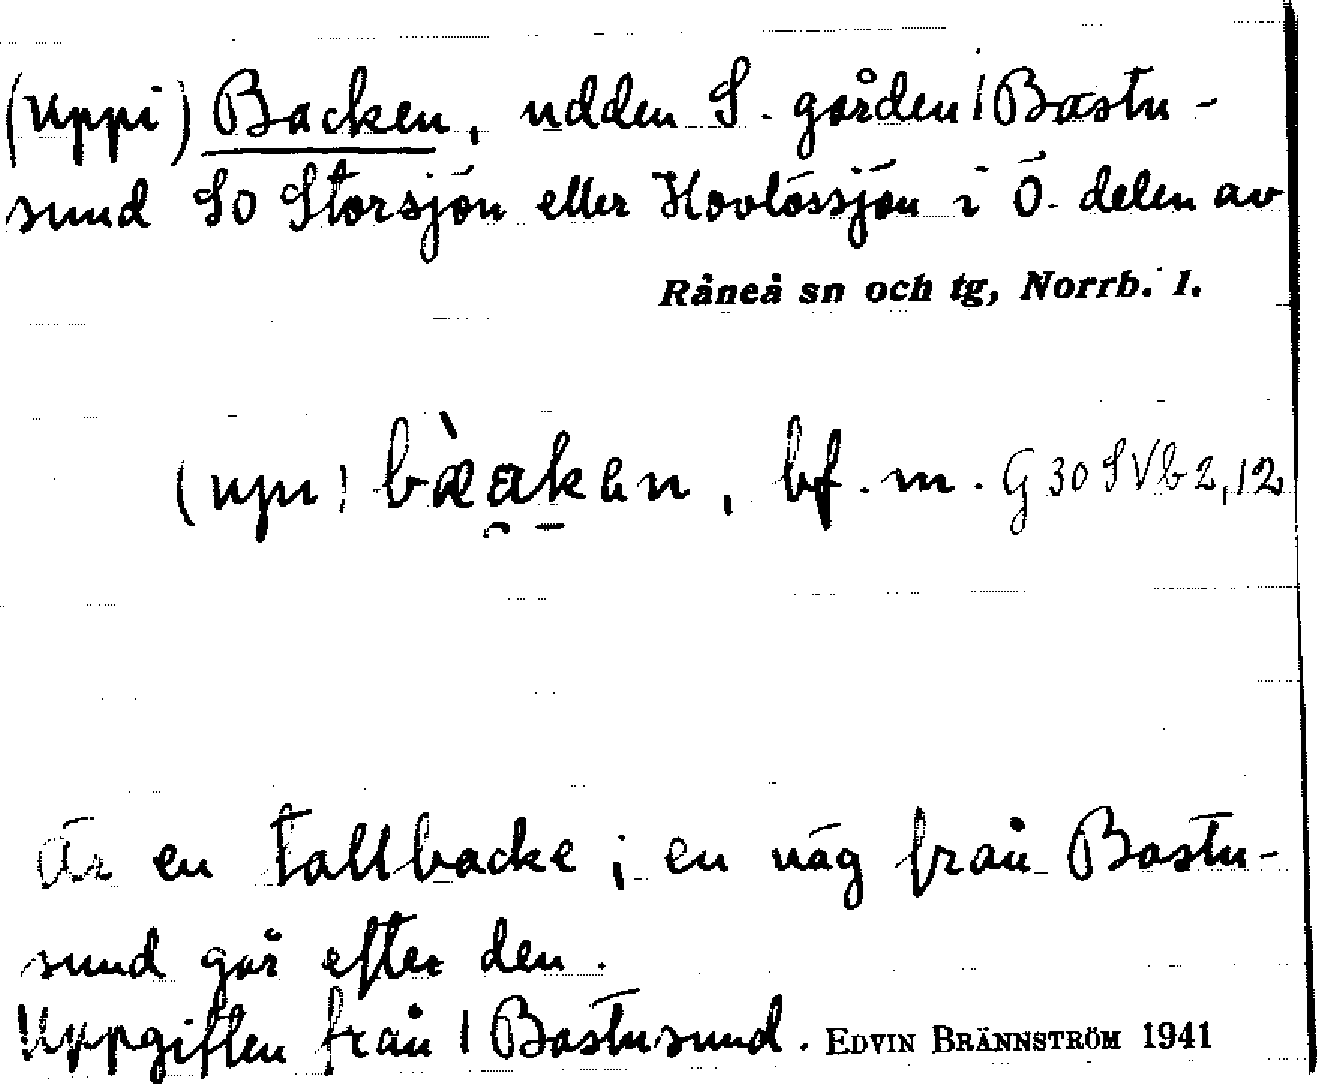 (Uppi) Backen, udden S. gården 1 Bastu-
sund SO Storsjön eller Hovlössjön i Ö. delen av
Råneå sn och tg, Norrb. l.
(upi) bàeaken, bf. m. G 30 SV b 2, 12
Är en tallbacke; en väg från Bastu-
sund går efter den.
Uppgiften från 1 Bastusund. EDVIN BRÄNNSTRÖM 1941